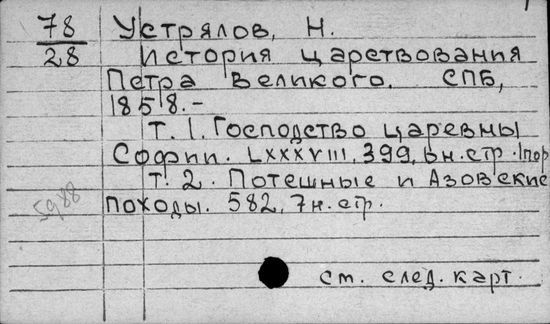 78 Устрялов, Н.
28 История царствования
Петра Великого. СПБ,
1858.-
Т. 1. Господство царевны
Софии. LXXXVIII, 399, 6 н. стр. 1 пор
Т. 2. Потешные и Азовские
5988 походы. 582, 7 н. стр.
см. след. карт.